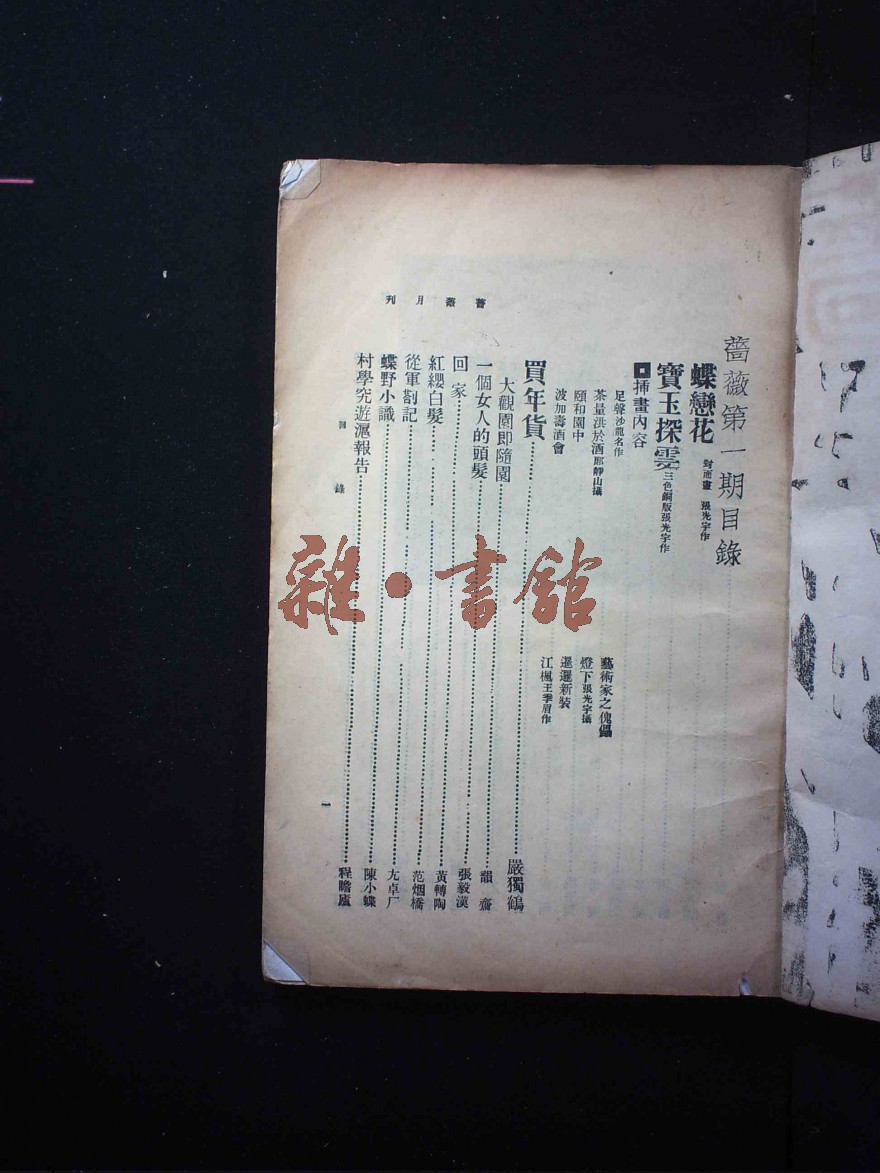 薔薇第一期目錄
蝶戀花 封面畫 張光宇作
寶玉探雯 三色銅版張光宇作
插畫內容
足聲沙龍名作
茶量洪於酒郎靜山攝
頤和園中
波加壽酒會
藝術家之傀儡
燈下張光宇攝
暹邏新裝
江楓王季眉作
買年貨 嚴獨鶴
大觀園即隨園 韻齋
一個女人的頭髮 張毅漢
回家 黃轉陶
紅纓白髮 范烟橋
從軍劄記 尢卓厂
蝶野小識 陳小蝶
村學究遊滬報告 程瞻廬
月刊
目錄
一
雜·書舘